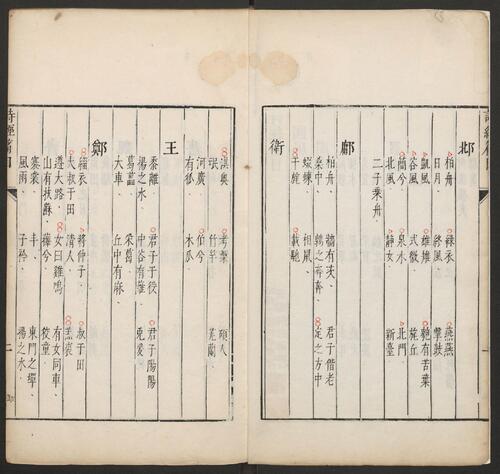 邶
柏舟 綠衣 燕燕
日月 終風 擊鼓
凱風 雄雉 匏有苦葉
谷風 式微 旄丘
簡兮 泉水 北門
北風 靜女 新臺
二子乘舟
鄘
柏舟 牆有茨 君子偕老
桑中 鶉之奔奔 定之方中
蝃蝀 相鼠
干旄 載馳
衛
淇奧 考槃 碩人
氓 竹竿 芄蘭
河廣 伯兮
有狐 木瓜
王
黍離 君子于役 君子陽陽
揚之水 中谷有蓷 兔爰
葛藟 采葛
大車 丘中有麻
鄭
緇衣 將仲子 叔于田
大叔于田 清人 羔裘
遵大路 女曰雞鳴 有女同車
山有扶蘇 蘀兮 狡童
褰裳 丰 東門之墠
風雨 子衿 揚之水
二